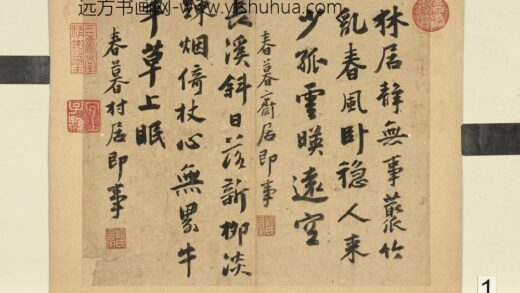 远方书画网-www.yfshuhua.com
林居静無事叢竹
亂春風卧穏人来
少孤雲暎遠空
春暮齋居即事
長溪斜日落新柳淡
疎烟倚杖心無累牛
羊草上眠
春暮村居即事
三希堂精鑑璽
宜子孫
1